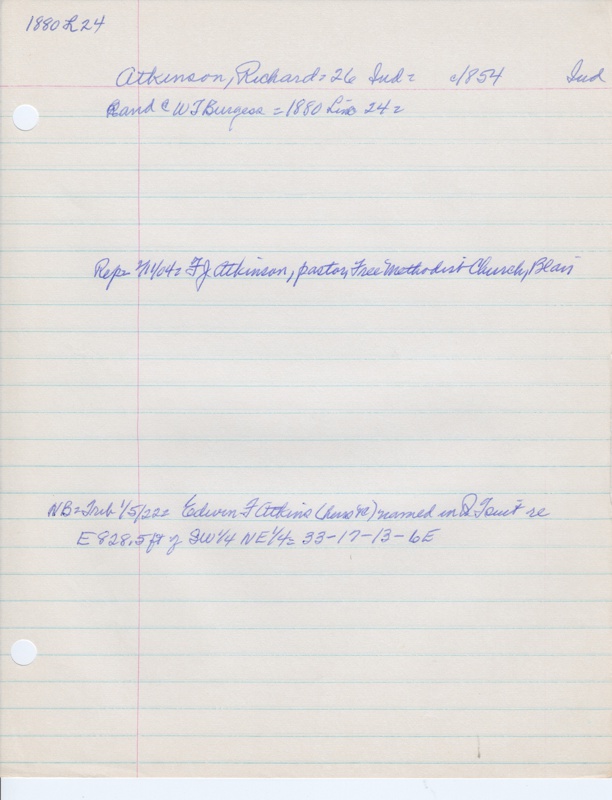 1880 L 24
Atkinson, Richard = 26 Ind = c/854 Ind
and c W T Burgess = 1880 Line 24 =
Rep = F J Atkinson, pastor, Free Methodist Church, Blair
NB = Trib 1/5/22 = Edwin F Atkins named in Q T suit re
E 828.5 ft of SW 1/4 NE 1/4 = 33-17-13-6E